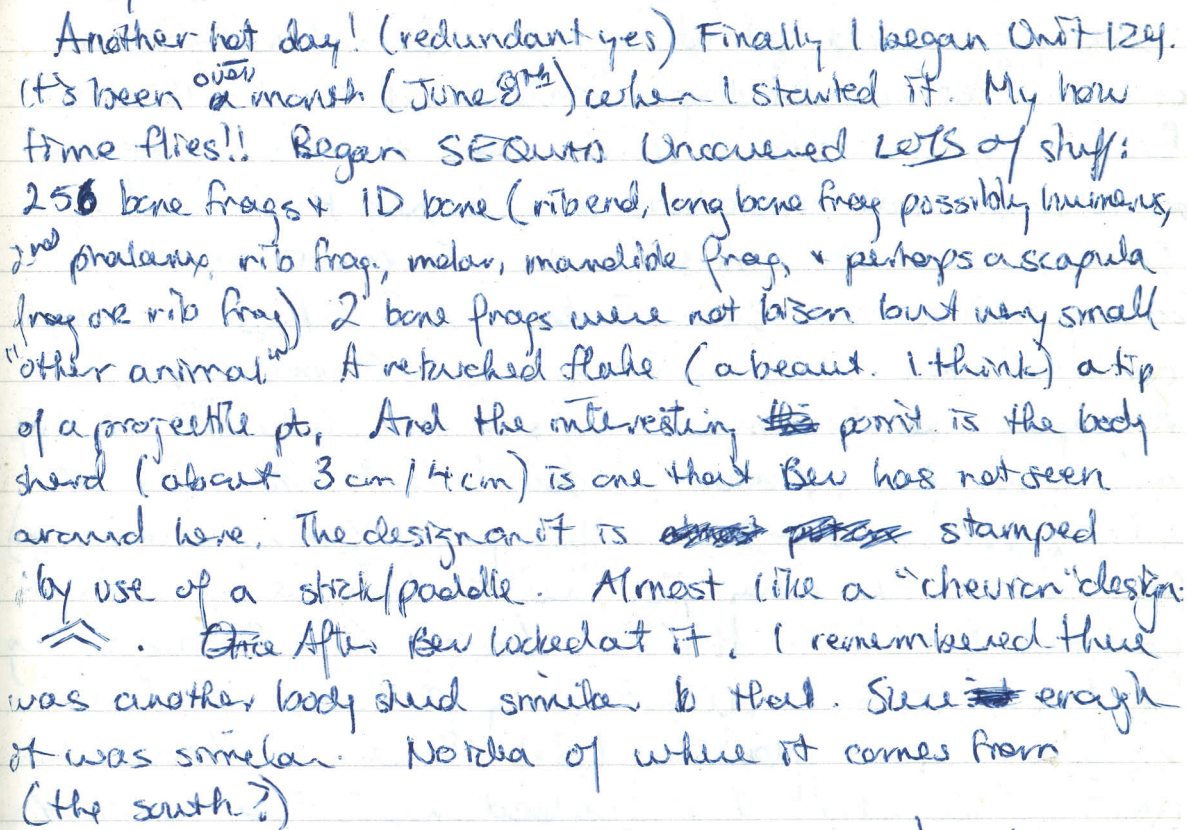 Another hot day! (redundant yes) Finally I began Unit 124.
It's been over a month (June 8th) when I started it. My how
time flies!! Began SEQuad Uncovered LOTS of stuff:
256 bone frags + ID bone (rib end, long bone frag possibly humerus,
2nd phalanx, rib frag., molar, mandible frag, + perhaps a scapula
frag or rib frag) 2 bone frags were not bison but very small
"other animal" A retouched flake (a beaut. I think) a tip
of a projectile pt, And the interesting point is the body
sherd (about 3 cm/4cm) is one that Bev has not seen
around here. The design on it is stamped
by use of a stick/paddle. Almost like a "chevron" design.
. After Bev looked at it, I remembered there
was another body sherd similar to that. Sure enough
it was similar. No idea of where it comes from
(the south?)